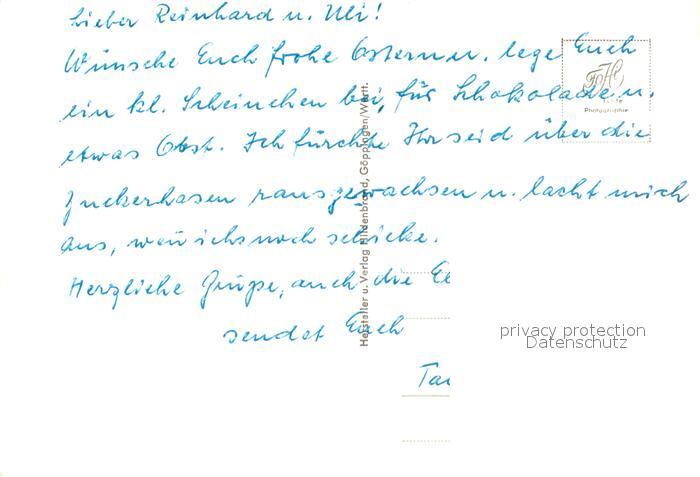 Lieber Reinhard u. Uli!
Wünsche Euch frohe Ostern u. lege Euch
ein kl. Scheinchen bei, für Schokolade u.
etwas Obst. Ich fürchte Ihr seid über die
Zuckerhasen rausgewachsen u. lacht mich
aus, wenn ichs noch schicke.
Herzliche Grüße, auch die
sendet Euch
Hersteller u. Verlag Hildenbrand, Göppingen/Württ.
Photographie
privacy protection
Datenschutz